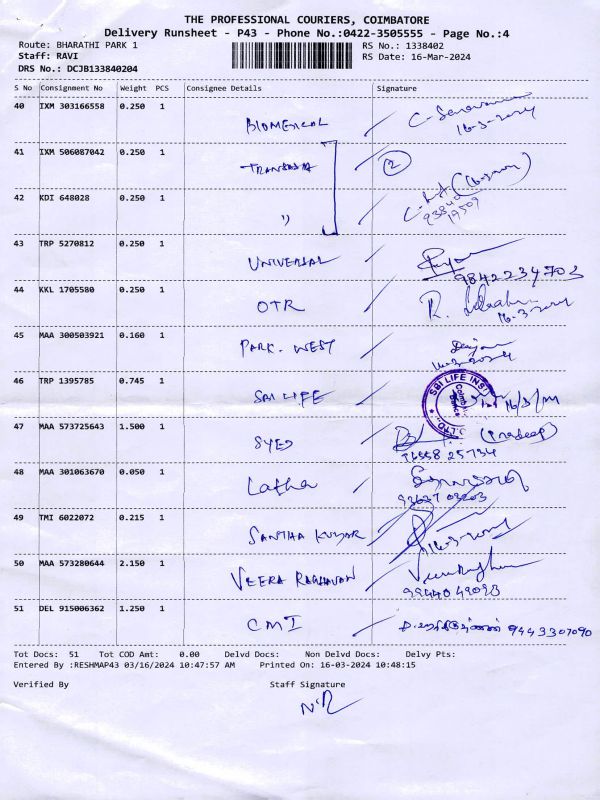 THE PROFESSIONAL COURIERS, COIMBATORE
Delivery Runsheet - P43 - Phone No.:0422-3505555 - Page No.:4
Route: BHARATHI PARK 1 RS No.: 1338402
Staff: RAVI RS Date: 16-Mar-2024
DRS No.: DCJB133840204
S No Consignment No Weight PCS Consignee Details Signature
40 IXM 303166558 0.250 1
BIOMEDICAL
16-3-2024
41 IXM 506087042 0.250 1
TRANSASIA 2
42 KDI 648028 0.250 1
"
43 TRP 5270812 0.250 1
UNIVERSAL
9842234703
44 KKL 1705580 0.250 1
OTR R.
16-3-2024
45 MAA 300503921 0.160 1
PARK. WEST
16-3-2024
46 TRP 1395785 0.745 1
SBI LIFE SBI LIFE INS
16/3/
47 MAA 573725643 1.500 1
SYED (Pradeep)
48 MAA 301063670 0.050 1
Latha
49 TMI 6022072 0.215 1
SANTHA KUMAR 16-3-2024
50 MAA 573280644 2.150 1
VEERA RAGHAVAN
9944049093
51 DEL 915006362 1.250 1
CMI 9443307090
Tot Docs: 51 Tot COD Amt: 0.00 Delvd Docs: Non Delvd Docs: Delvy Pts:
Entered By :RESHMAP43 03/16/2024 10:47:57 AM Printed On: 16-03-2024 10:48:15
Verified By Staff Signature